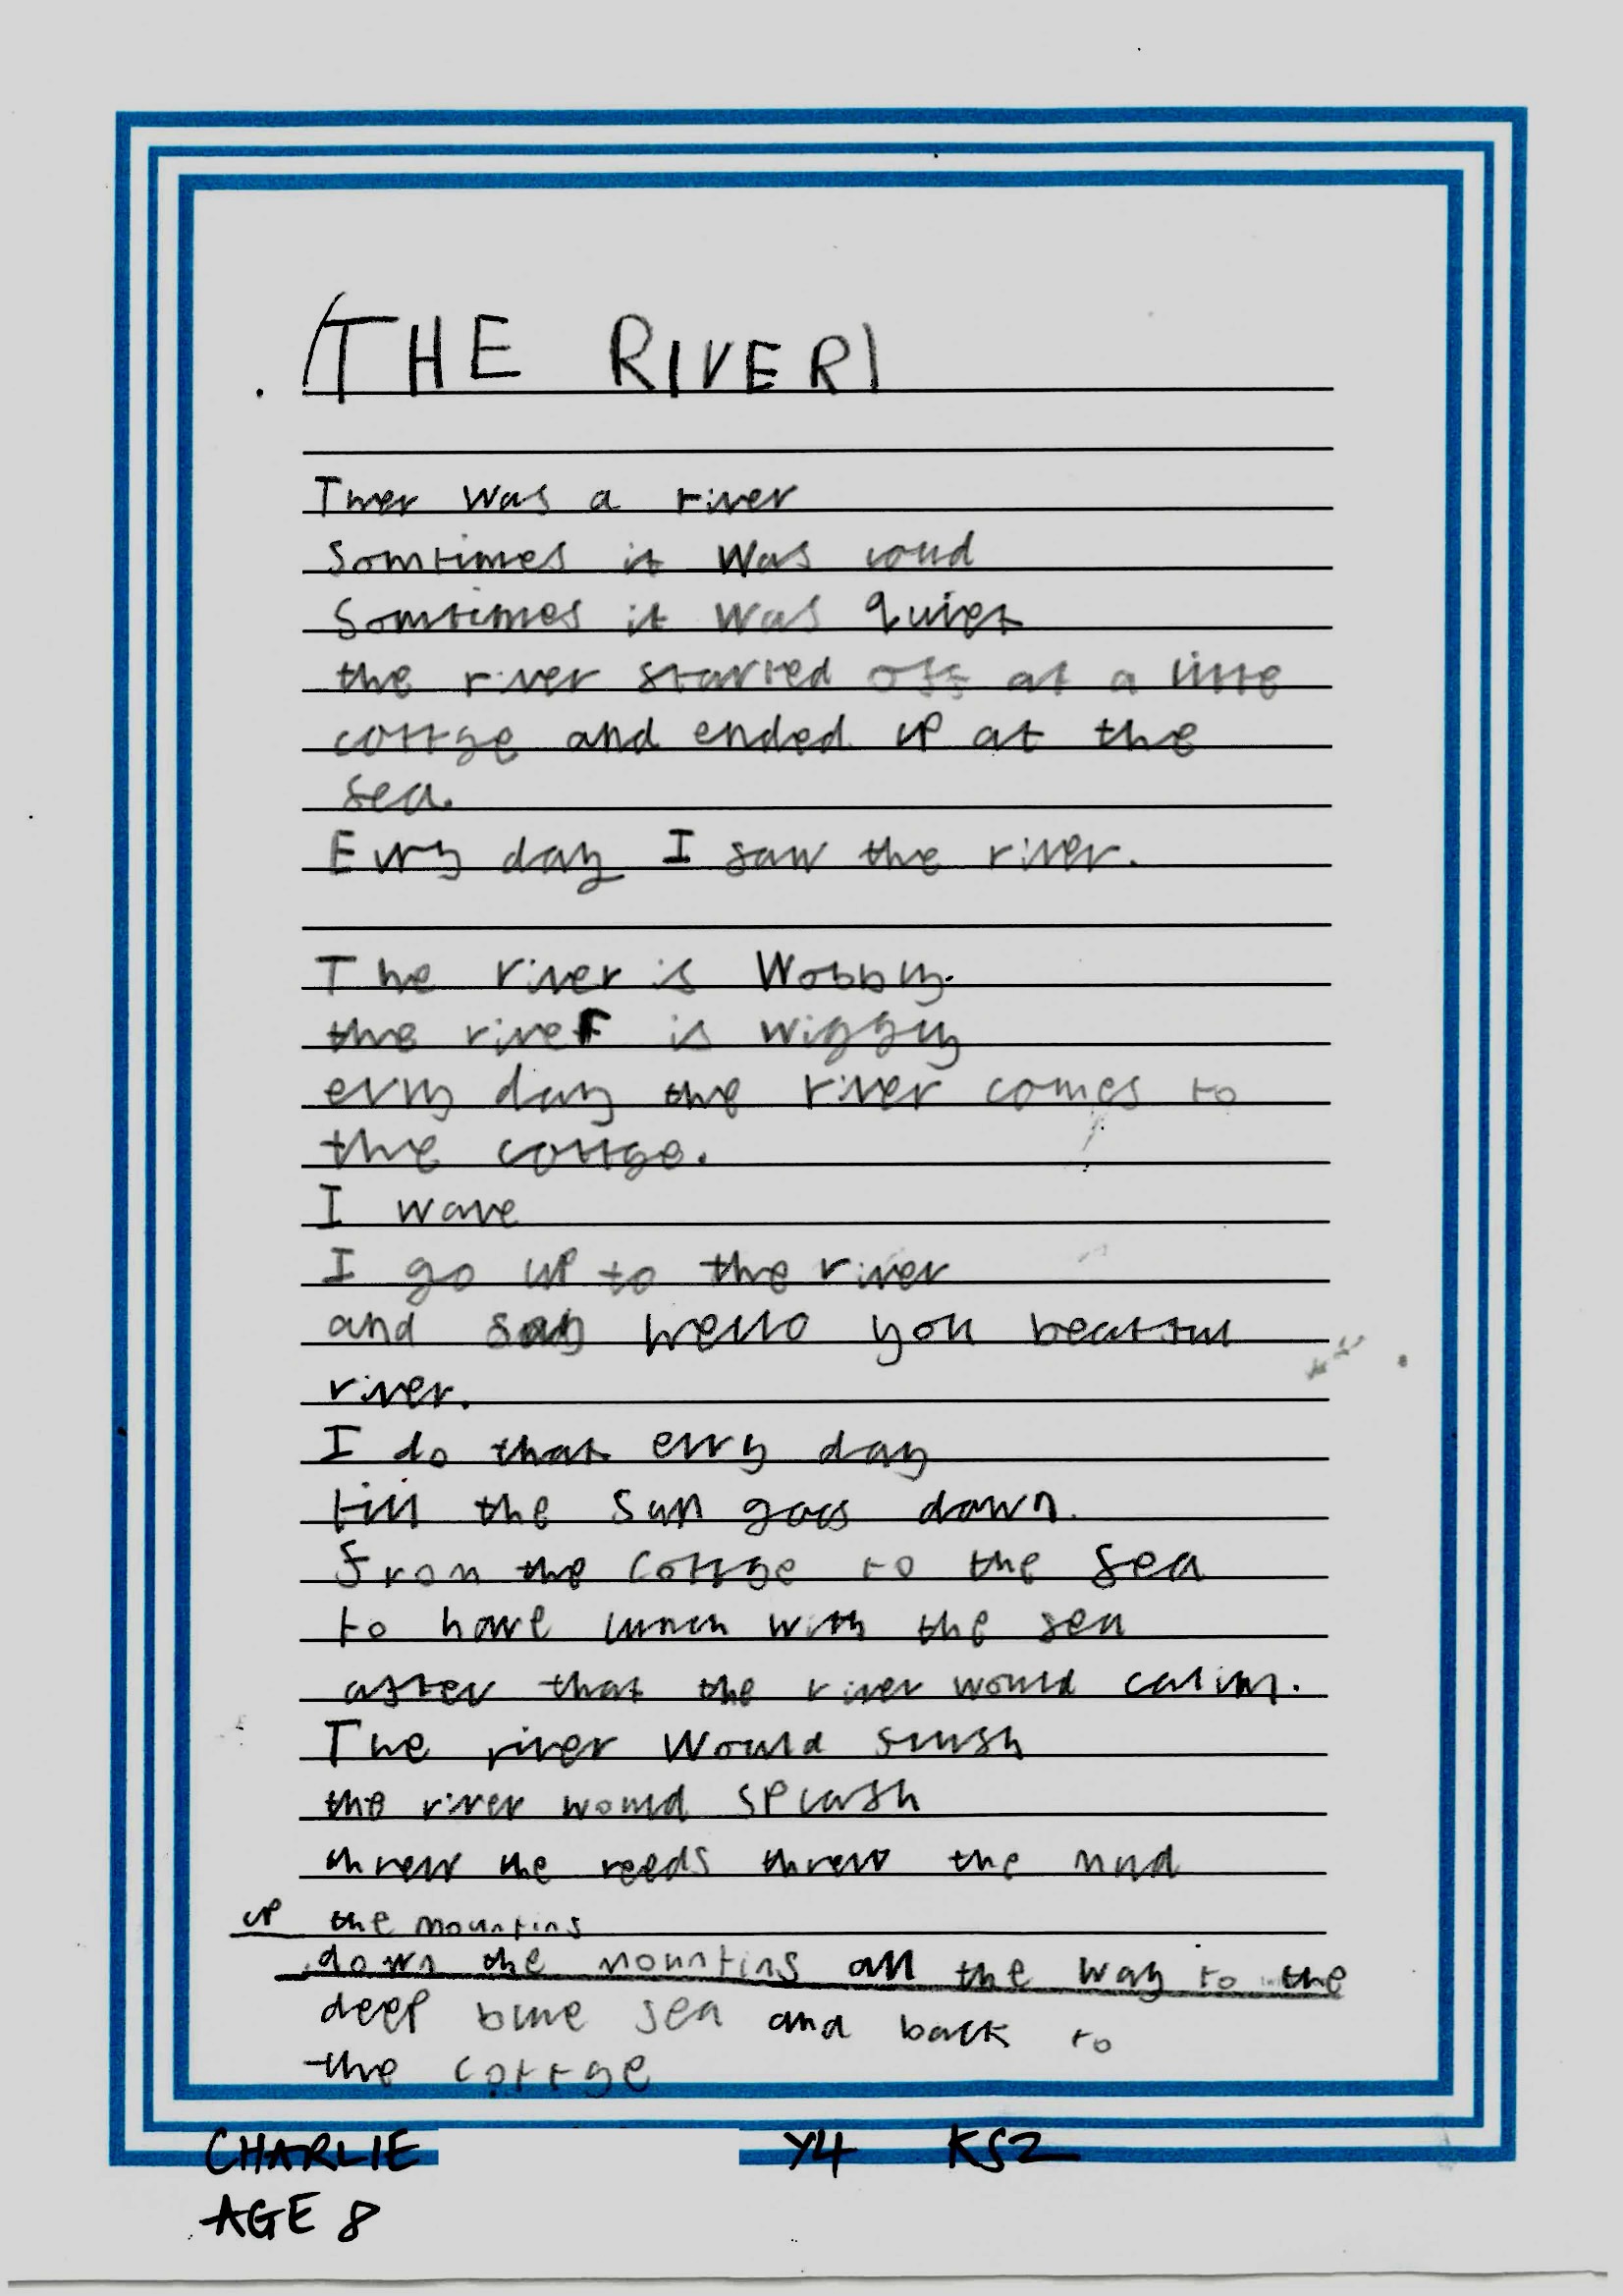 (THE RIVER)
Ther was a river
Somtimes it was loud
Somtimes it was quiet
the river started off at a littte
cottge and ended up at the
sea.
Evry day I saw the river.
The river is Wobbly.
the river is wiggly
evry day the river comes to
the cottge.
I wave
I go up to the river
and say hello you beatful
river.
I do that evry day
till the sun goes down.
from the Cottge to the sea
to have lunch with the sea
after that the river would calim.
The river would slush
the river would splash
threw the reeds threw the mud
up the mountins
down the mountins all the way to the
deep blue sea and back to
the cottge
CHARLIE Y4 KS2
AGE 8